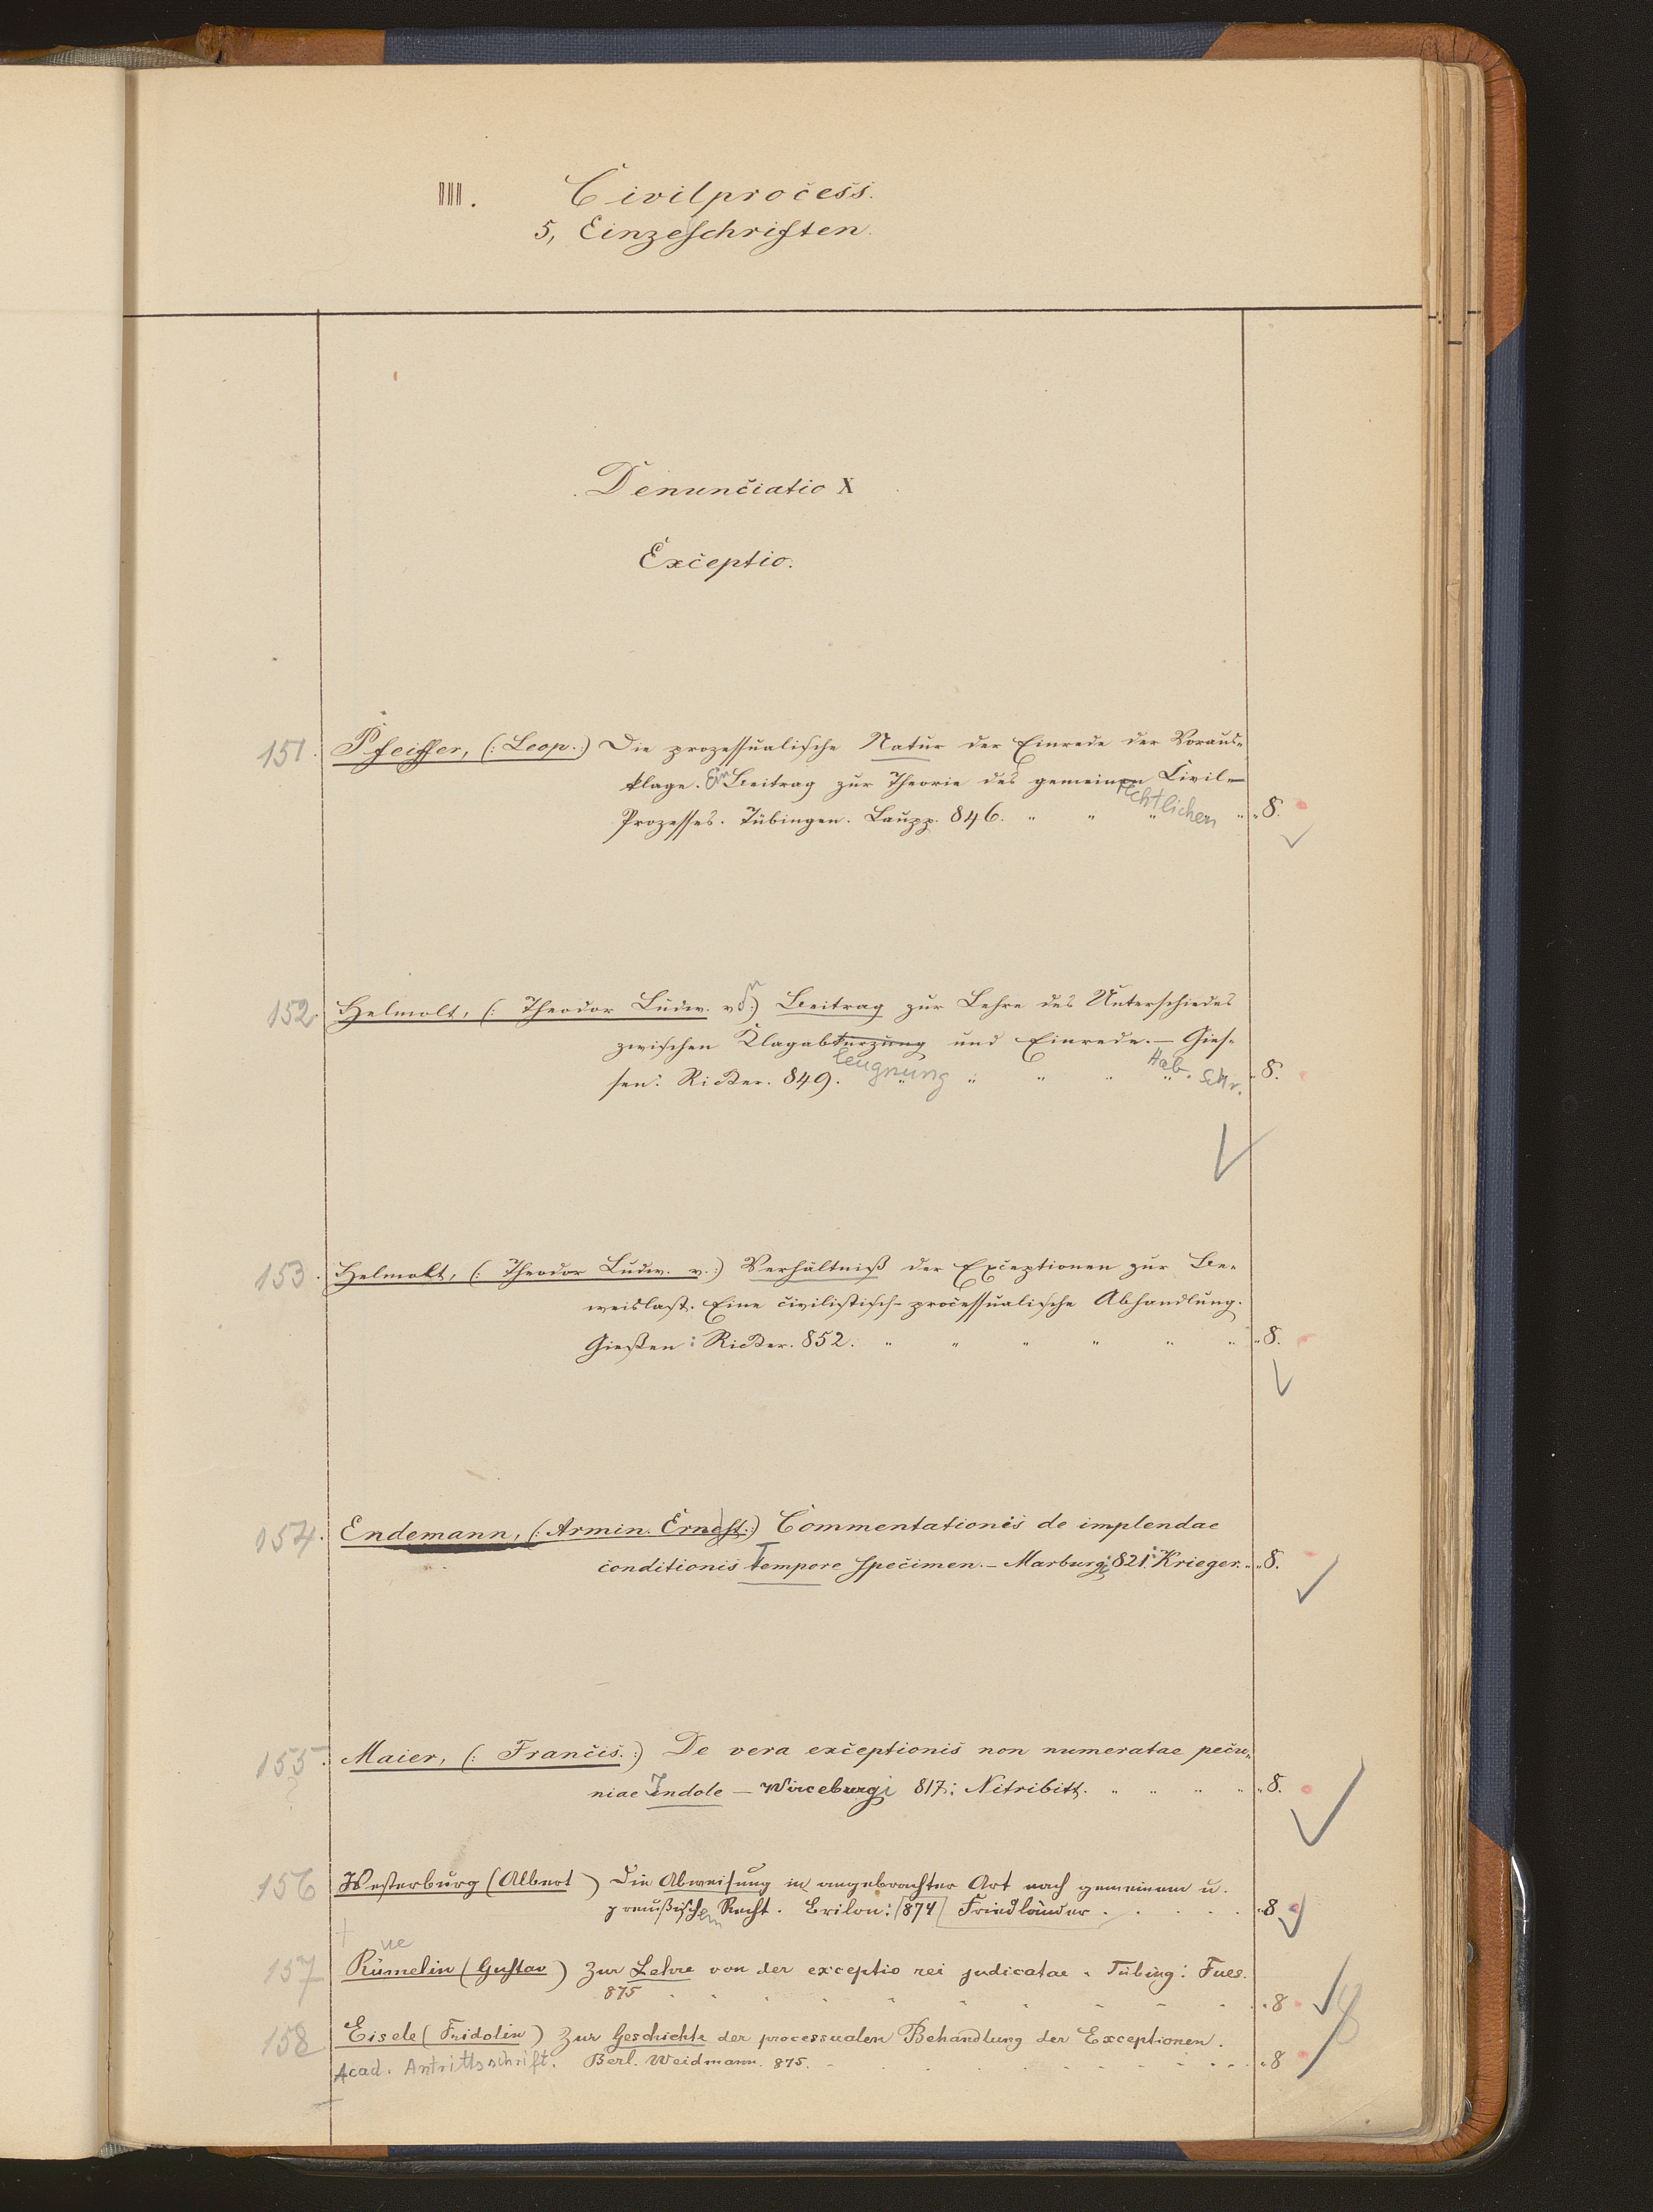 III. Civilprocess.
5, Einzelschriften.
Denunciatio X
Exceptio.
151. Pfeiffer, (: Leop. :) Die prozessualische Natur der Einrede der Voraus-
klage. Ein Beitrag zur Theorie des gemeinen Civil-
rechtlichen
Prozesses. Tübingen. Laupp. 846. " " " " " 8.
152. Helmolt, (: Theodor Ludw. v. :) Beitrag zur Lehre des Unterschiedes
zwischen Klagabkürzung und Einrede. – Gies-
leugnung Hab. Schr.
sen: Ricker. 849. " " " " " " 8.
153. Helmolt, (: Theodor Ludw. v. :) Verhältniß der Exceptionen zur Be-
weislast. Eine civilistisch-processualische Abhandlung.
Gießen: Ricker. 852. " " " " " " " 8.
154. Endemann, (: Armin. Ernest. :) Commentationis de implendae
conditionis Tempore specimen. – Marburgi 821: Krieger. " " 8.
155. Maier, (: Francis. :) De vera exceptionis non numeratae pecu-
niae Indole – Wirceburgi 817: Nitribitt. " " " " " 8.
156 Westerburg (Albert) Die Abweisung in angebrachter Art nach gemeinem u.
preußischem Recht. Brilon: 874 Friedländer . . . . . " 8
ue
157 Rümelin (Gustav) Zur Lehre von der exceptio rei judicatae. Tübing: Fues.
875 . . . . . . . . . . " 8
158 Eisele (Fridolin) Zur Geschichte der processualen Behandlung der Exceptionen.
Acad. Antrittsschrift. Berl. Weidmann. 875. - . . . . . . - - - " 8